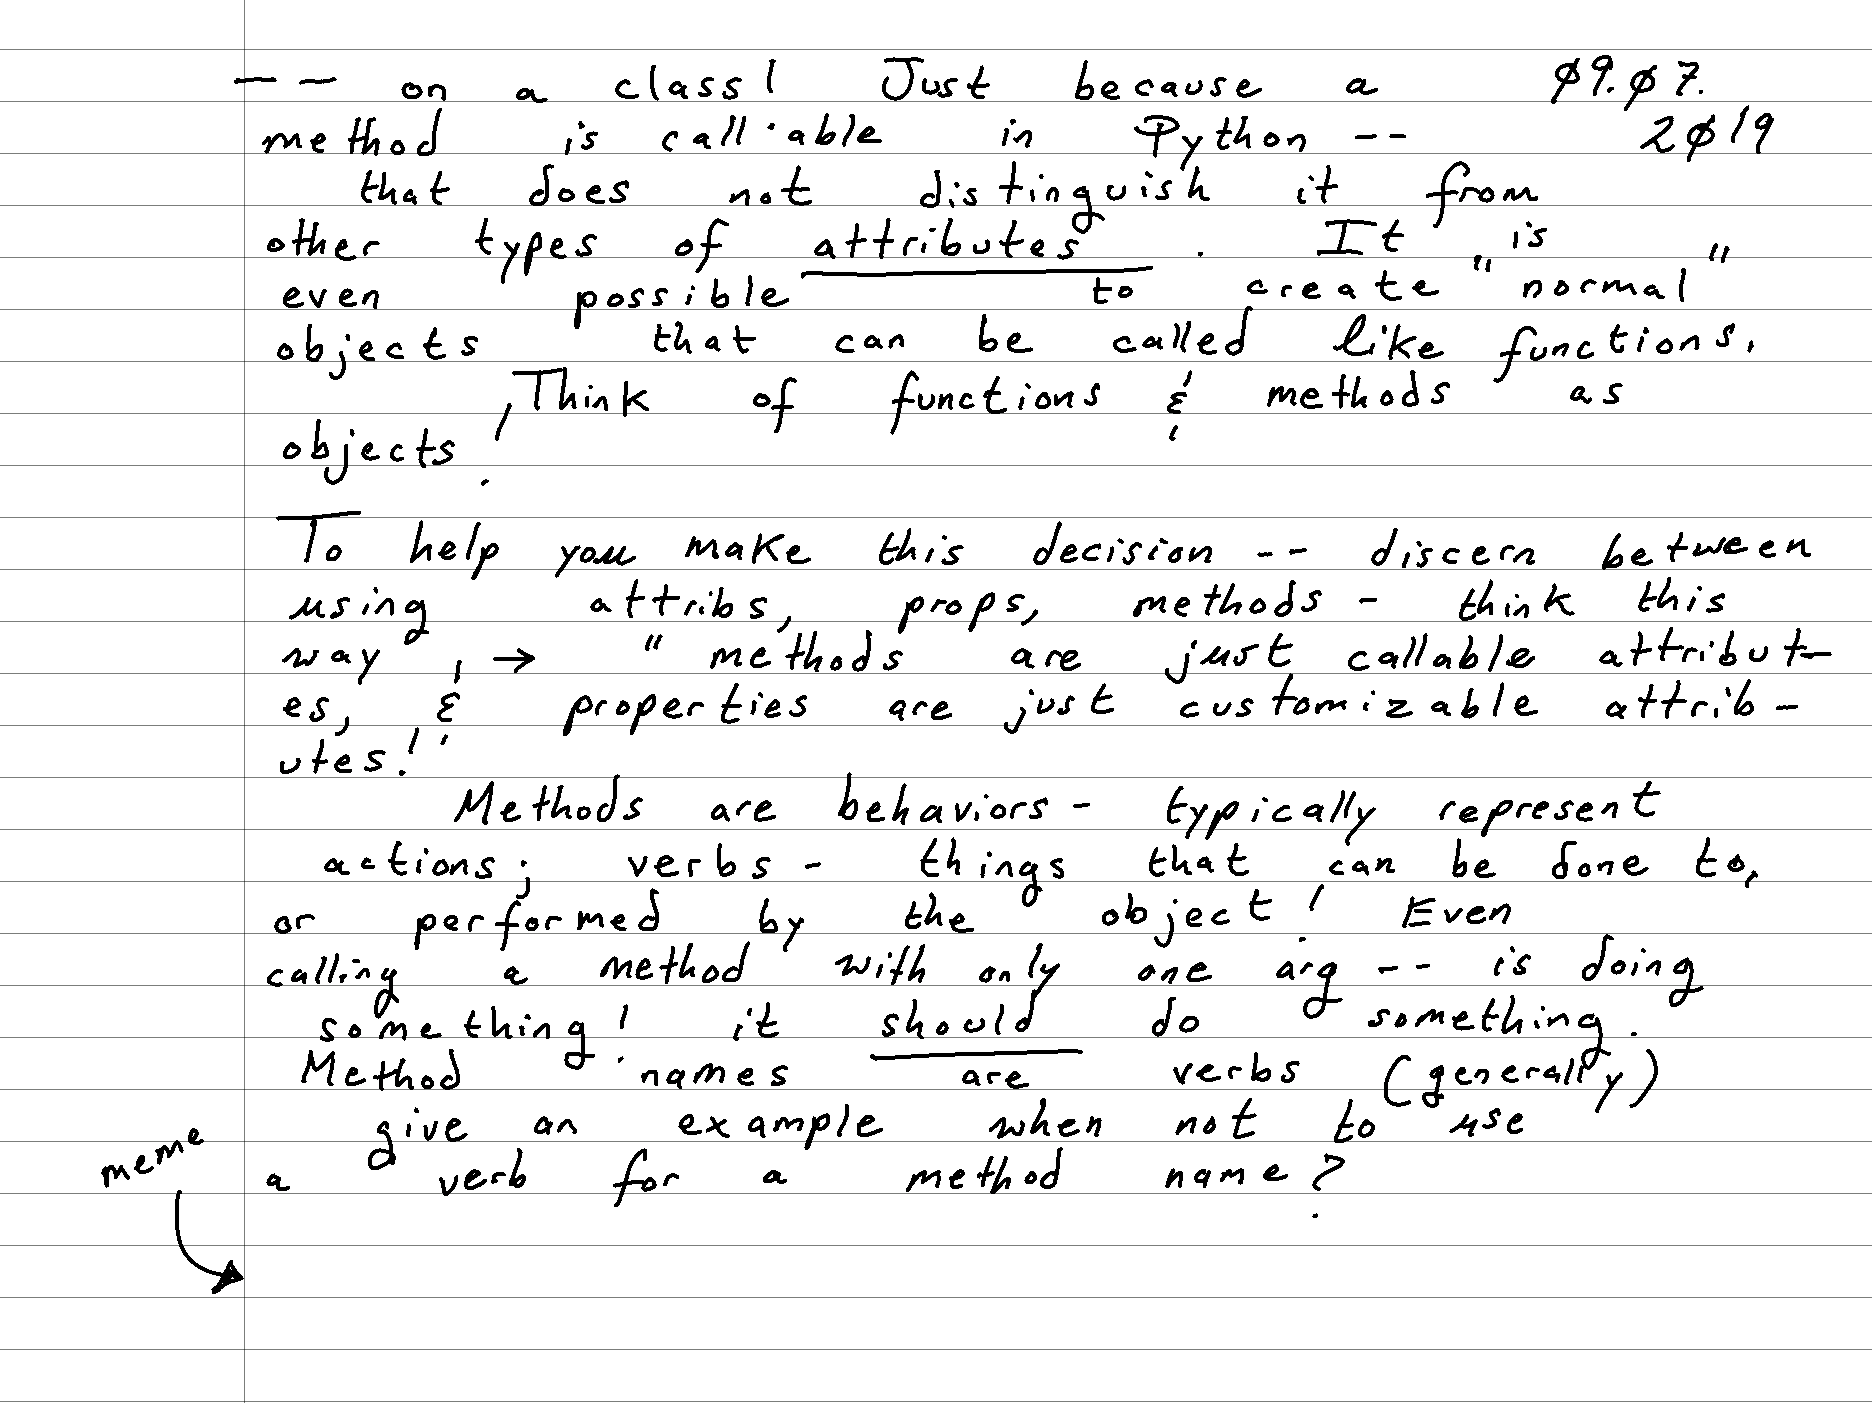 -- on a class! Just because a ø9.ø7.
method is call·able in Python -- 2ø19
that does not distinguish it from
other types of attributes. It is
even possible to create "normal"
objects that can be called like functions.
Think of functions & methods as
objects!
To help you make this decision -- discern between
using attribs, props, methods - think this
way, → "methods are just callable attribut-
es, & properties are just customizable attrib-
utes!"
Methods are behaviors - typically represent
actions; verbs - things that can be done to,
or performed by the object! Even
calling a method with only one arg -- is doing
something! it should do something.
Method names are verbs (generally)
give an example when not to use
a verb for a method name?
meme